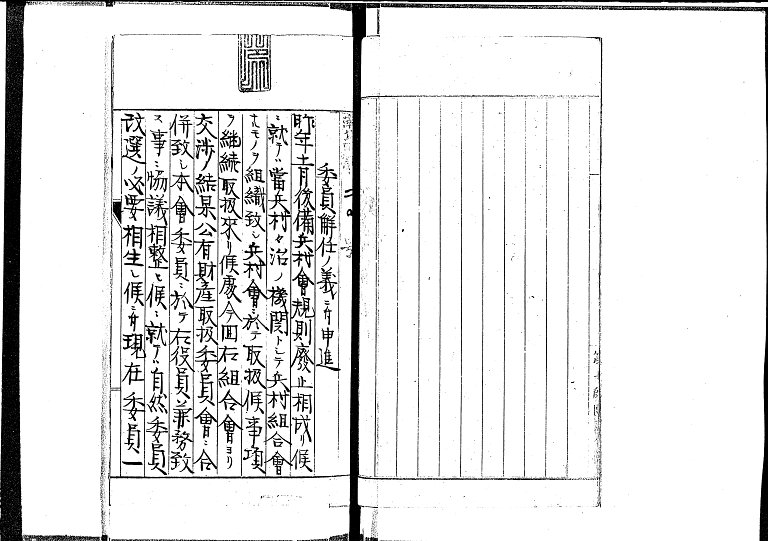 委員解任ノ義ニ付申進
昨年十一月後備兵村會規則廢止相成リ候
ニ就テハ當兵村々治ノ機関トシテ兵村組合會
ナルモノヲ組織致シ兵村會ニ於テ取扱候事項
ヲ継続取扱来リ候處今回右組合會ヨリ
交渉ノ結果公有財産取扱委員會ニ合
併致シ本會委員ニ於テ右役員兼務致
ス事ニ協議相整ヒ候ニ就テハ自然委員
改選ノ必要相生シ候ニ付現在委員一